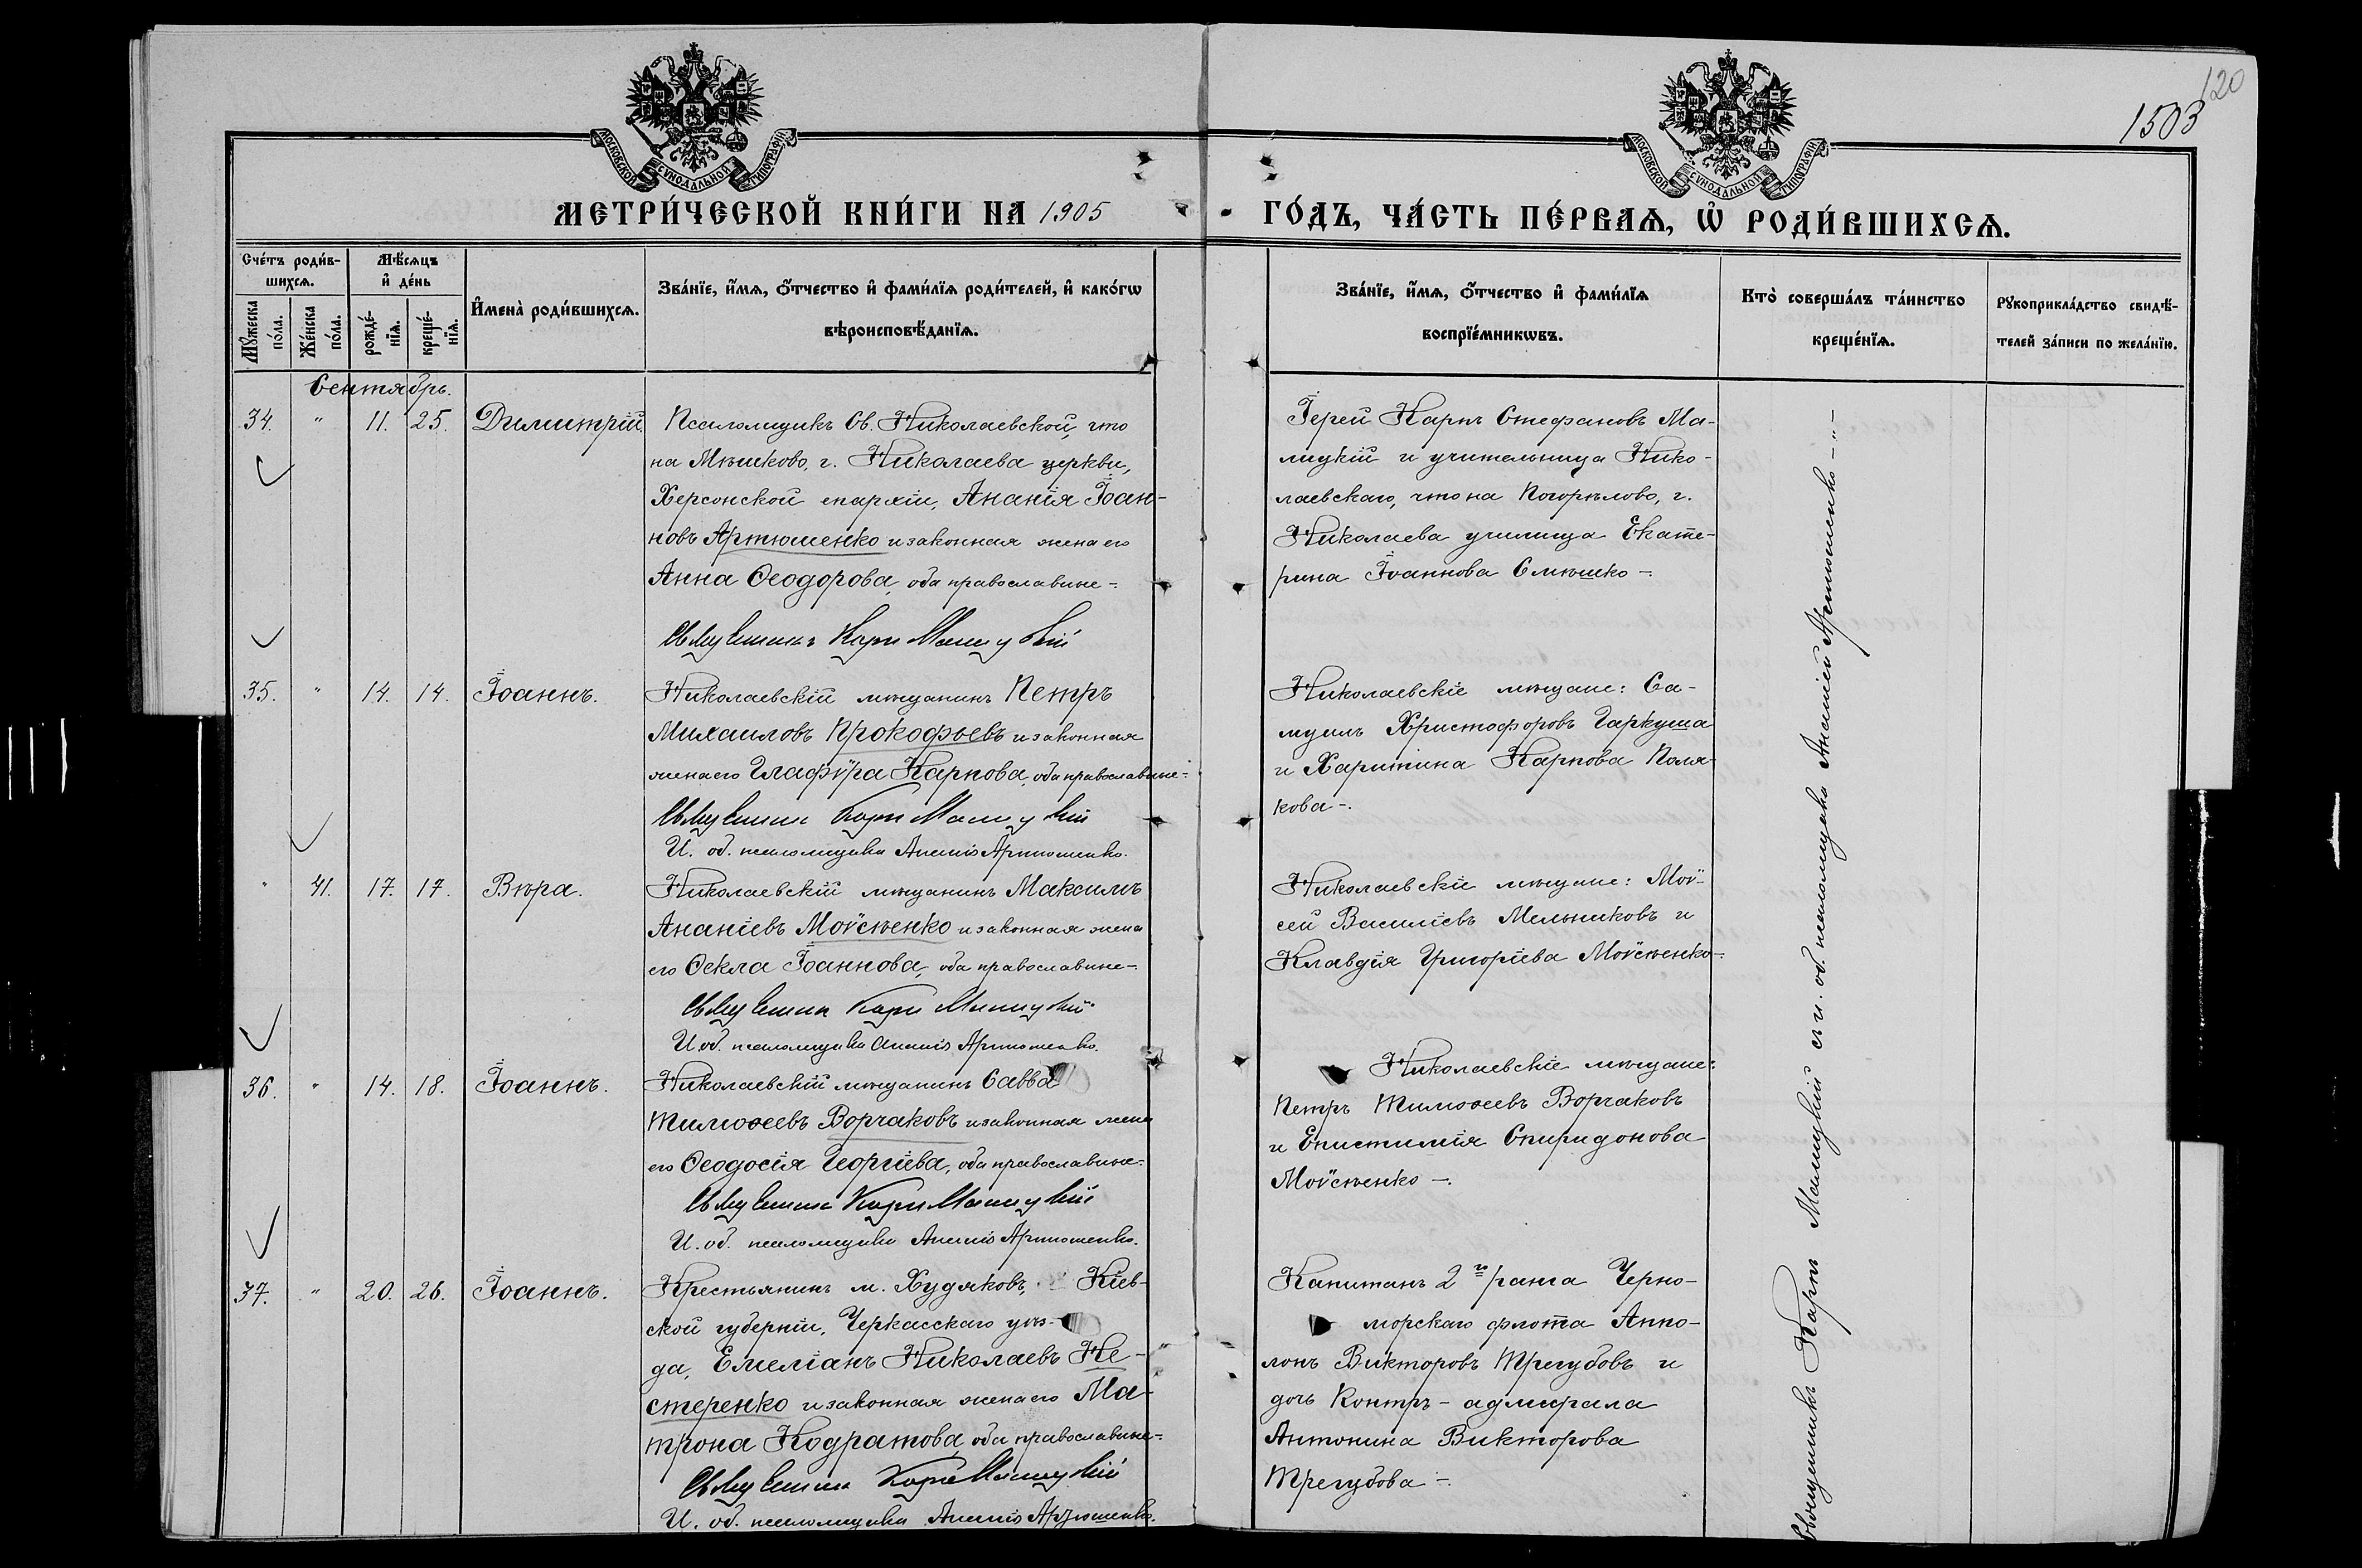 120
1503
МОСКОВСКОЙ СѴНОДАЛЬНОЙ ТИПОГРАФІИ
МОСКОВСКОЙ СѴНОДАЛЬНОЙ ТИПОГРАФІИ
МЕТРИ́ЧЕСКОЙ КНИ́ГИ НА 1905
ГО́ДЪ, ЧА́СТЬ ПЕ́РВАѦ, Ѡ҆ РОДИ́ВШИХСѦ.
Сче́тъ роди́в-
шихсѧ.
Мꙋ́жеска по́ла.
Же́нска по́ла.
Мѣ́сѧцъ
и҆ де́нь
рожде́-
нїѧ.
креще́-
нїѧ.
И҆мена̀ роди́вшихсѧ.
Зва́нїе, и҆́мѧ, ѻ҆́тчество и҆ фами́лїѧ роди́телей, и҆ како́гѡ
вѣроисповѣ́данїѧ.
Зва́нїе, и҆́мѧ, ѻ҆́тчество и҆ фами́лїѧ
воспрїе́мникѡвъ.
Кто̀ соверша́лъ та́инство
креще́нїѧ.
Рꙋкоприкла́дство свидѣ́-
телей за́писи по жела́нїю.
Сентябрь.
34. " 11. 25. Димитрій.
Псаломщикъ Св. Николаевской, что
на Мѣшково, г. Николаева церкви,
Херсонской епархіи, Ананія Іоан-
новъ Артюшенко и законная жена его
Анна Ѳеодорова, оба православные-.
Священникъ Карпъ Малицкій
Іерей Карпъ Стефановъ Ма-
лицкій и учительница Нико-
лаевскаго, что на Погорѣлово, г.
Николаева училища Екате-
рина Іоаннова Слюшко-.
35. " 14. 14. Іоаннъ.
Николаевскій мѣщанинъ Петръ
Михаиловъ Прокофьевъ и законная
жена его Глафѵра Карпова, оба православные-.
Священникъ Карпъ Малицкій
И. об. псаломщика Ананій Артюшенко.
Николаевскіе мѣщане: Са-
муилъ Христофоровъ Гаркуша
и Харитина Карпова Поля-
кова-.
" 41. 17. 17. Вѣра.
Николаевскій мѣщанинъ Максимъ
Ананіевъ Моѵсѣенко и законная жена
его Ѳекла Іоаннова, оба православные-.
Священникъ Карпъ Малицкій
И. об. псаломщика Ананій Артюшенко.
Николаевскіе мѣщане: Моѵ-
сей Василіевъ Мельниковъ и
Клавдія Григоріева Моѵсѣенко-.
36. " 14. 18. Іоаннъ.
Николаевскій мѣщанинъ Савва
Тимоѳеевъ Ворчаковъ и законная жена
его Ѳеодосія Георгіева, оба православные-.
Священникъ Карпъ Малицкій
И. об. псаломщика Ананій Артюшенко.
Николаевскіе мѣщане:
Петръ Тимоѳеевъ Ворчаковъ
и Епистимія Спиридонова
Моѵсѣенко-.
37. " 20. 26. Іоаннъ.
Крестьянинъ м. Худяковъ, Кіев-
ской губерніи, Черкасскаго уѣз-
да, Емеліанъ Николаевъ Не-
стеренко и законная жена его Ма-
трона Кодратова, оба православные-.
Священникъ Карпъ Малицкій
И. об. псаломщика Ананій Артюшенко.
Капитанъ 2го ранга Черно-
морскаго флота Аппо-
лонъ Викторовъ Трегубовъ и
дочь Контръ-адмирала
Антонина Викторова
Трегубова-.
Священникъ Карпъ Малицкій съ и. об. псаломщика Ананіей Артюшенко-"-